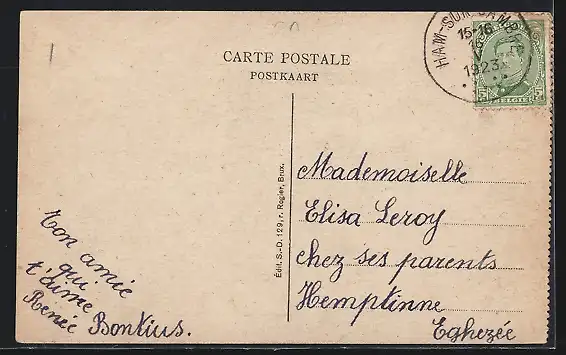 CARTE POSTALE
POSTKAART
HAM-SUR-SAMBRE
15-16
1923
BELGIË
Mademoiselle
Elisa Leroy
chez ses parents
Hemptinne
Eghezée
Édit. S.-D. 129, r. Rogier, Brux.
Ton amie
qui
t'aime
Renée Bontius.